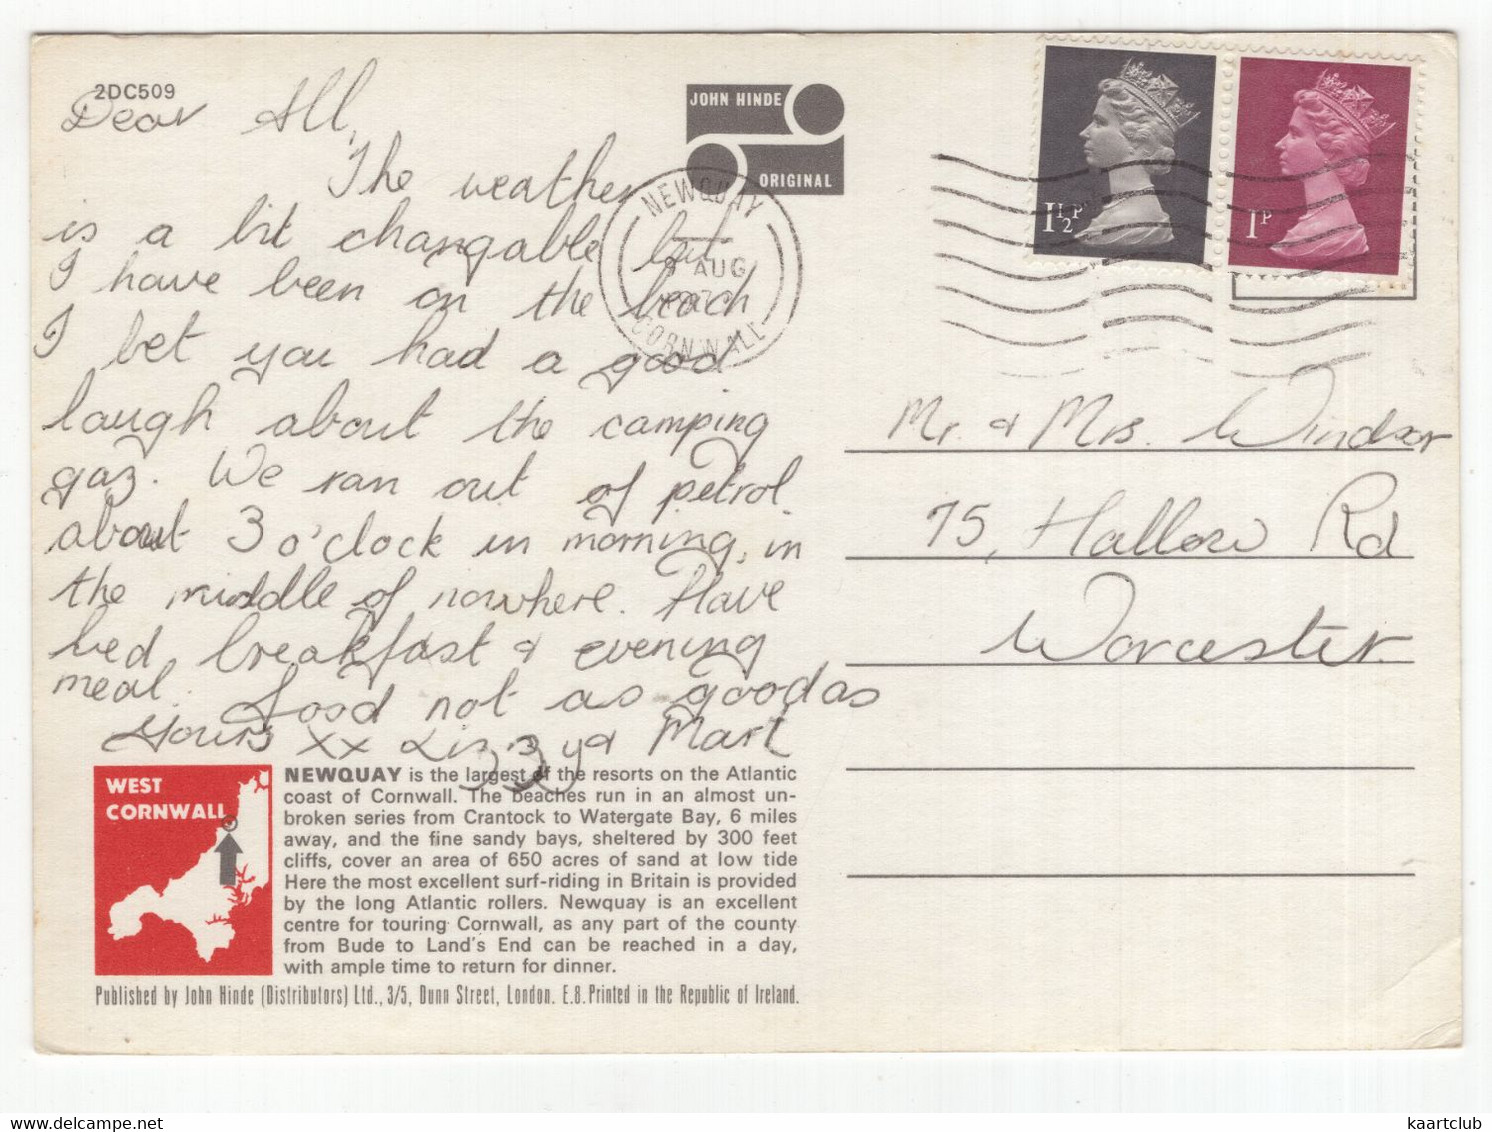 2DC509
JOHN HINDE
ORIGINAL
Dear All,
The weather
is a bit changable but
I have been on the beach
I bet you had a good
laugh about the camping
gaz. We ran out of petrol
about 3 o'clock in morning, in
the middle of nowhere. Have
bed breakfast & evening
meal. Food not as good as
yours xx & Mart
NEWQUAY
AUG
CORNWALL
1½P
1P
Mr. & Mrs. Windsor
75, Hallow Rd
Worcester
WEST
CORNWALL
NEWQUAY is the largest of the resorts on the Atlantic
coast of Cornwall. The beaches run in an almost un-
broken series from Crantock to Watergate Bay, 6 miles
away, and the fine sandy bays, sheltered by 300 feet
cliffs, cover an area of 650 acres of sand at low tide
Here the most excellent surf-riding in Britain is provided
by the long Atlantic rollers. Newquay is an excellent
centre for touring Cornwall, as any part of the county
from Bude to Land's End can be reached in a day,
with ample time to return for dinner.
Published by John Hinde (Distributors) Ltd., 3/5, Dunn Street, London. E.8. Printed in the Republic of Ireland.
kaartclub